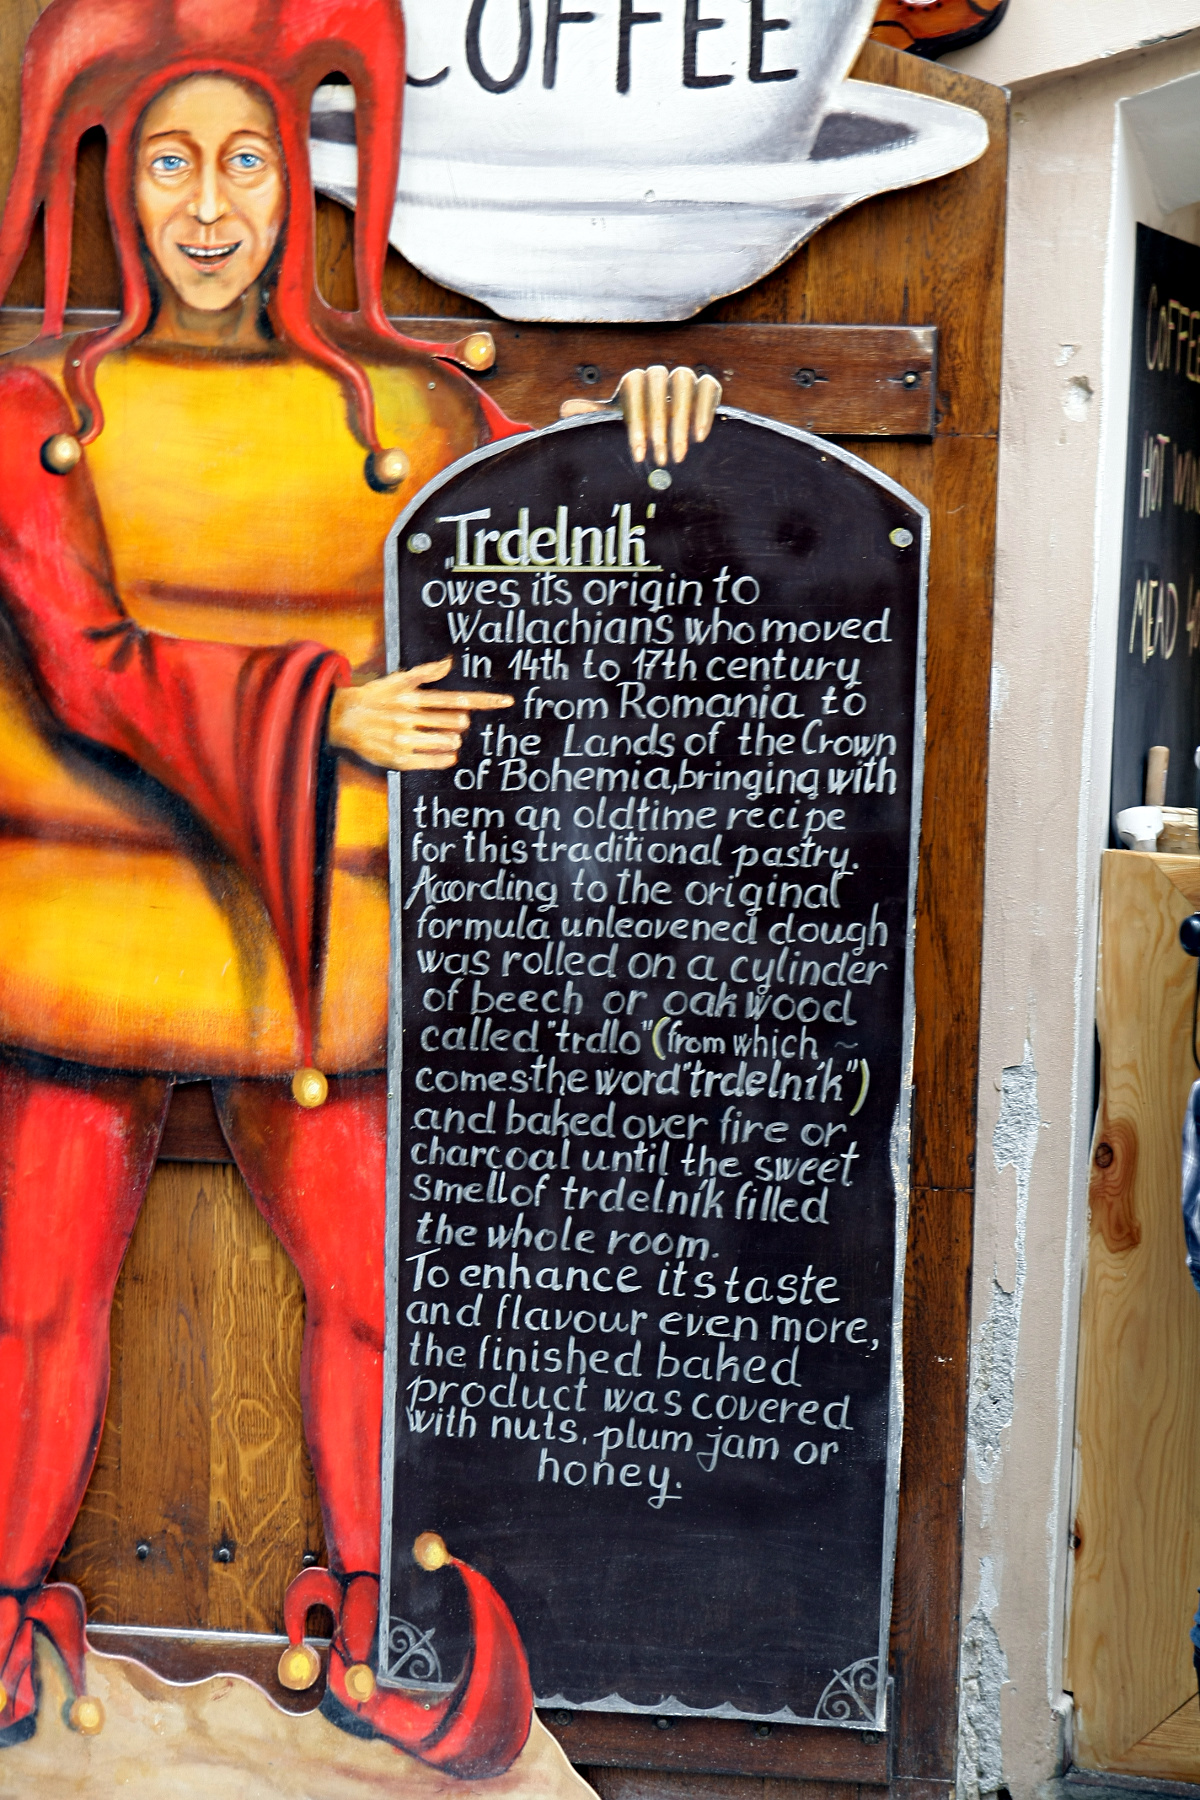 COFFEE
„Trdelník'
owes its origin to
Wallachians who moved
in 14th to 17th century
from Romania to
the Lands of the Crown
of Bohemia, bringing with
them an oldtime recipe
for this traditional pastry.
According to the original
formula unleavened dough
was rolled on a cylinder
of beech or oak wood
called "trdlo" (from which ~
comes the word "trdelník")
and baked over fire or
charcoal until the sweet
smell of trdelník filled
the whole room.
To enhance its taste
and flavour even more,
the finished baked
product was covered
with nuts, plum jam or
honey.
COFFEE
HOT
MEAD